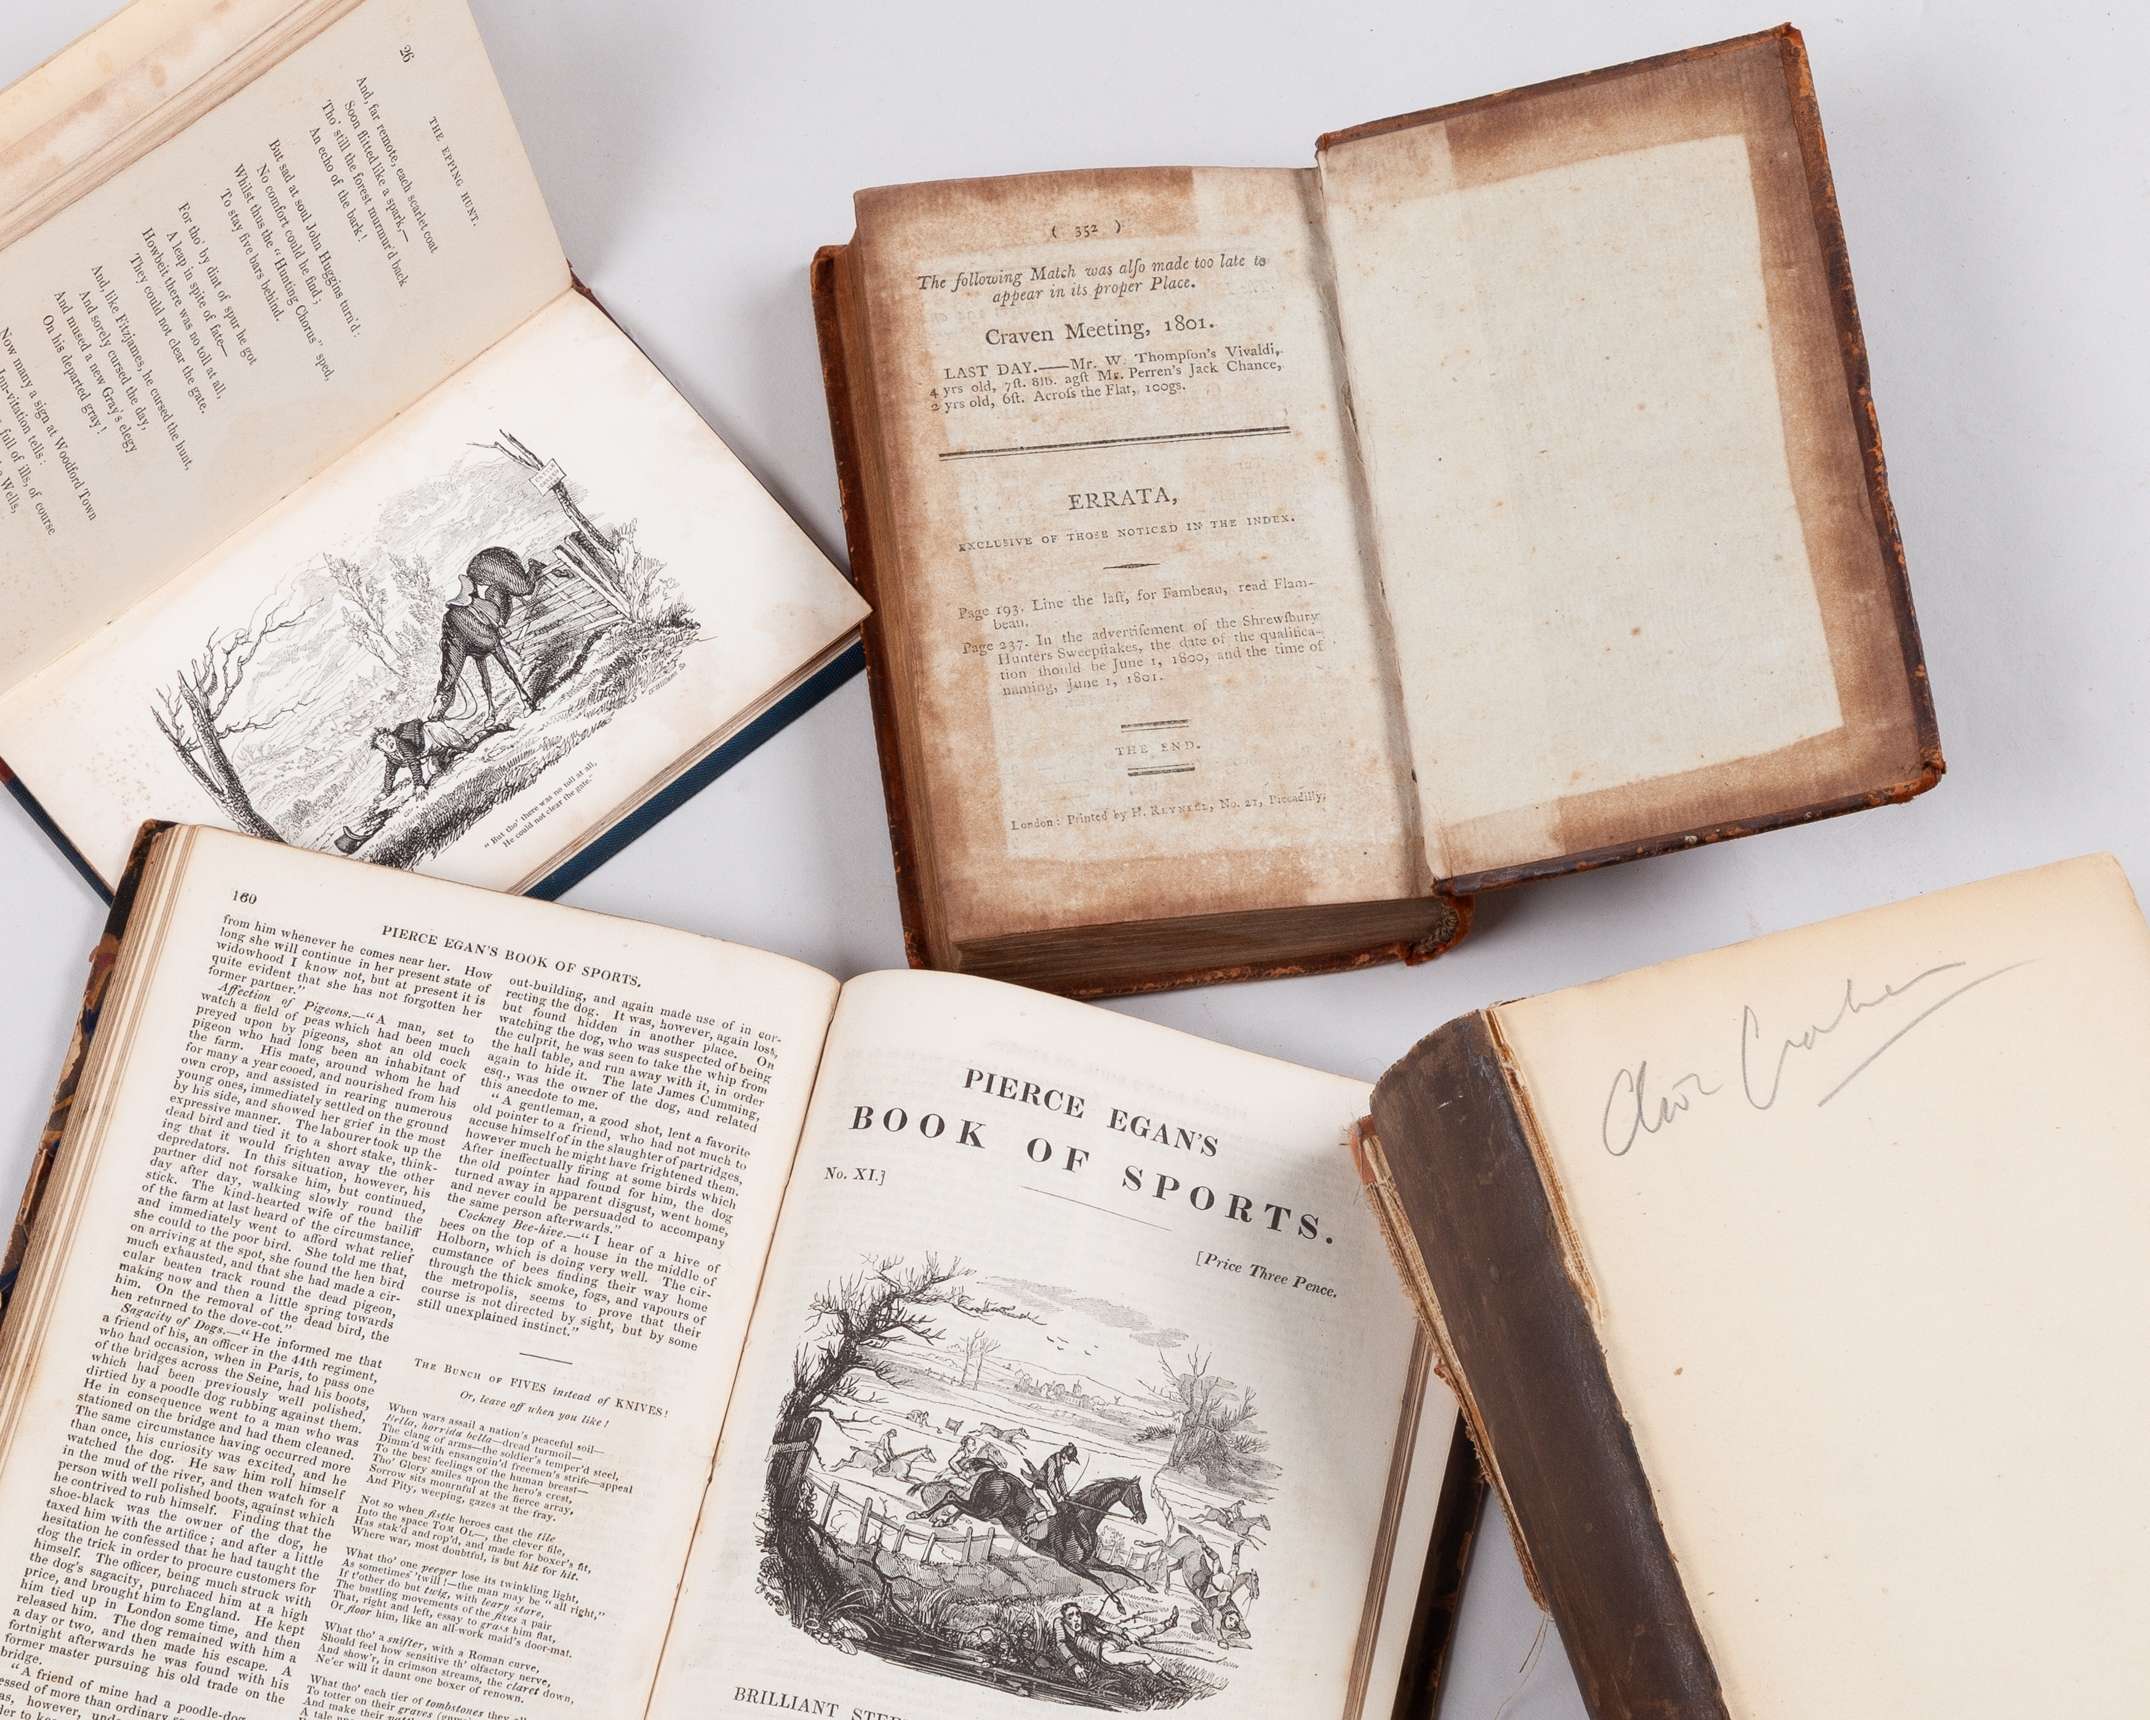 26
THE EPPING HUNT.
And, far remote, each scarlet coat
Soon flitted like a spark,—
Tho' still the forest murmur'd back
An echo of the bark!
But sad at soul John Huggins turn'd:
No comfort could he find;
Whilst thus the "Hunting Chorus" sped,
To stay five bars behind.
For tho' by dint of spur he got
A leap in spite of fate—
Howbeit there was no toll at all,
They could not clear the gate.
And, like Fitzjames, he cursed the hunt,
And sorely cursed the day,
And mused a new Gray's elegy
On his departed gray!
Now many a sign at Woodford Town
Inn-vitation tells:
full of ills, of course
Wells,
"But tho' there was no toll at all,
He could not clear the gate."
( 352 )
The following Match was alſo made too late to
appear in its proper Place.
Craven Meeting, 1801.
LAST DAY.——Mr. W. Thompſon's Vivaldi,
4 yrs old, 7ſt. 8lb. agſt Mr. Perren's Jack Chance,
2 yrs old, 6ſt. Acroſs the Flat, 100gs.
ERRATA,
EXCLUSIVE OF THOSE NOTICED IN THE INDEX.
Page 193. Line the laſt, for Fambeau, read Flam-
beau.
Page 237. In the advertiſement of the Shrewſbury
Hunters Sweepſtakes, the date of the qualifica-
tion ſhould be June 1, 1800, and the time of
naming, June 1, 1801.
THE END.
London: Printed by H. REYNELL, No. 21, Piccadilly.
160
PIERCE EGAN'S BOOK OF SPORTS.
from him whenever he comes near her. How
long she will continue in her present state of
widowhood I know not, but at present it is
quite evident that she has not forgotten her
former partner."
Affection of Pigeons.—"A man, set to
watch a field of peas which had been much
preyed upon by pigeons, shot an old cock
pigeon who had long been an inhabitant of
the farm. His mate, around whom he had
for many a year cooed, and nourished from his
own crop, and assisted in rearing numerous
young ones, immediately settled on the ground
by his side, and showed her grief in the most
expressive manner. The labourer took up the
dead bird and tied it to a short stake, think-
ing that it would frighten away the other
depredators. In this situation, however, his
partner did not forsake him, but continued,
day after day, walking slowly round the
stick. The kind-hearted wife of the bailiff
of the farm at last heard of the circumstance,
and immediately went to afford what relief
she could to the poor bird. She told me that,
on arriving at the spot, she found the hen bird
much exhausted, and that she had made a cir-
cular beaten track round the dead pigeon,
making now and then a little spring towards
him. On the removal of the dead bird, the
hen returned to the dove-cot."
Sagacity of Dogs.—"He informed me that
a friend of his, an officer in the 44th regiment,
who had occasion, when in Paris, to pass one
of the bridges across the Seine, had his boots,
which had been previously well polished,
dirtied by a poodle dog rubbing against them.
He in consequence went to a man who was
stationed on the bridge and had them cleaned.
The same circumstance having occurred more
than once, his curiosity was excited, and he
watched the dog. He saw him roll himself
in the mud of the river, and then watch for a
person with well polished boots, against which
he contrived to rub himself. Finding that the
shoe-black was the owner of the dog, he
taxed him with the artifice; and after a little
hesitation he confessed that he had taught the
dog the trick in order to procure customers for
himself. The officer, being much struck with
the dog's sagacity, purchased him at a high
price, and brought him to England. He kept
him tied up in London some time, and then
released him. The dog remained with him a
a day or two, and then made his escape. A
fortnight afterwards he was found with his
former master pursuing his old trade on the
bridge.
"A friend of mine had a poodle-dog
essed of more than ordinary
as, however,
out-building, and again made use of in cor-
recting the dog. It was, however, again lost,
but found hidden in another place. On
watching the dog, who was suspected of being
the culprit, he was seen to take the whip from
the hall table, and run away with it, in order
again to hide it. The late James Cumming,
esq., was the owner of the dog, and related
this anecdote to me.
"A gentleman, a good shot, lent a favorite
old pointer to a friend, who had not much to
accuse himself of in the slaughter of partridges,
however much he might have frightened them.
After ineffectually firing at some birds which
the old pointer had found for him, the dog
turned away in apparent disgust, went home,
and never could be persuaded to accompany
the same person afterwards."
Cockney Bee-hive.—"I hear of a hive of
bees on the top of a house in the middle of
Holborn, which is doing very well. The cir-
cumstance of bees finding their way home
through the thick smoke, fogs, and vapours of
the metropolis, seems to prove that their
course is not directed by sight, but by some
still unexplained instinct."
THE BUNCH OF FIVES instead of KNIVES!
Or, leave off when you like!
When wars assail a nation's peaceful soil—
Bella, horrida bella—dread turmoil—
The clang of arms—the soldier's temper'd steel,
Dimm'd with ensanguin'd freemen's strife—appeal
To the best feelings of the human breast—
Tho' Glory smiles upon the hero's crest,
Sorrow sits mournful at the fierce array,
And Pity, weeping, gazes at the fray.
Not so when fistic heroes cast the tile
Into the space TOM OL—, the clever file,
Has stak'd and rop'd, and made for boxer's fit,
Where war, most doubtful, is but hit for hit.
What tho' one peeper lose its twinkling light,
As sometimes 'twill!—the man may be "all right,"
If t'other do but twig, with leary stare,
The bustling movements of the fives a pair
That, right and left, essay to grass him flat,
Or floor him, like an all-work maid's door-mat.
What tho' a snifter, with a Roman curve,
Should feel how sensitive th' olfactory nerve,
And show'r, in crimson streams, the claret down,
Ne'er will it daunt one boxer of renown.
What tho' each tier of tombstones they
To totter on their graves
And make their
A tale
PIERCE EGAN'S
BOOK OF SPORTS.
No. XI.]
[Price Three Pence.
BRILLIANT